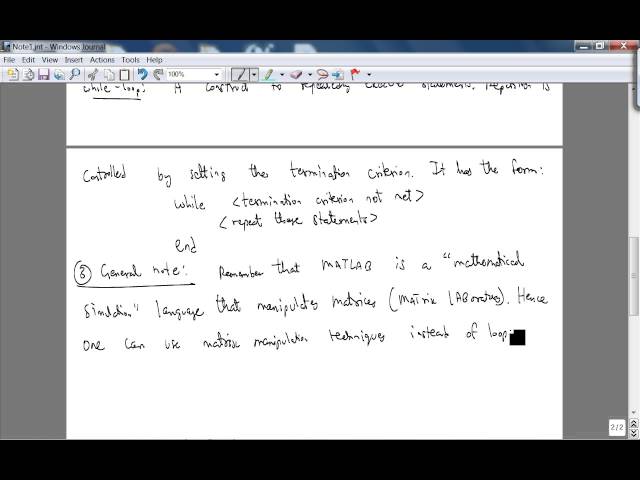 Note1.jnt - Windows Journal
File Edit View Insert Actions Tools Help
100%
while-loop: A construct to repeatedly execute statements. Repetition is
Controlled by setting the termination criterion. It has the form:
while <termination criterion not met>
<repeat these statements>
end
⑧ General note: Remember that MATLAB is a "mathematical
Simulation" language that manipulates matrices (MATrix LABoratory). Hence
one can use matrix manipulation techniques instead of loop
2/2